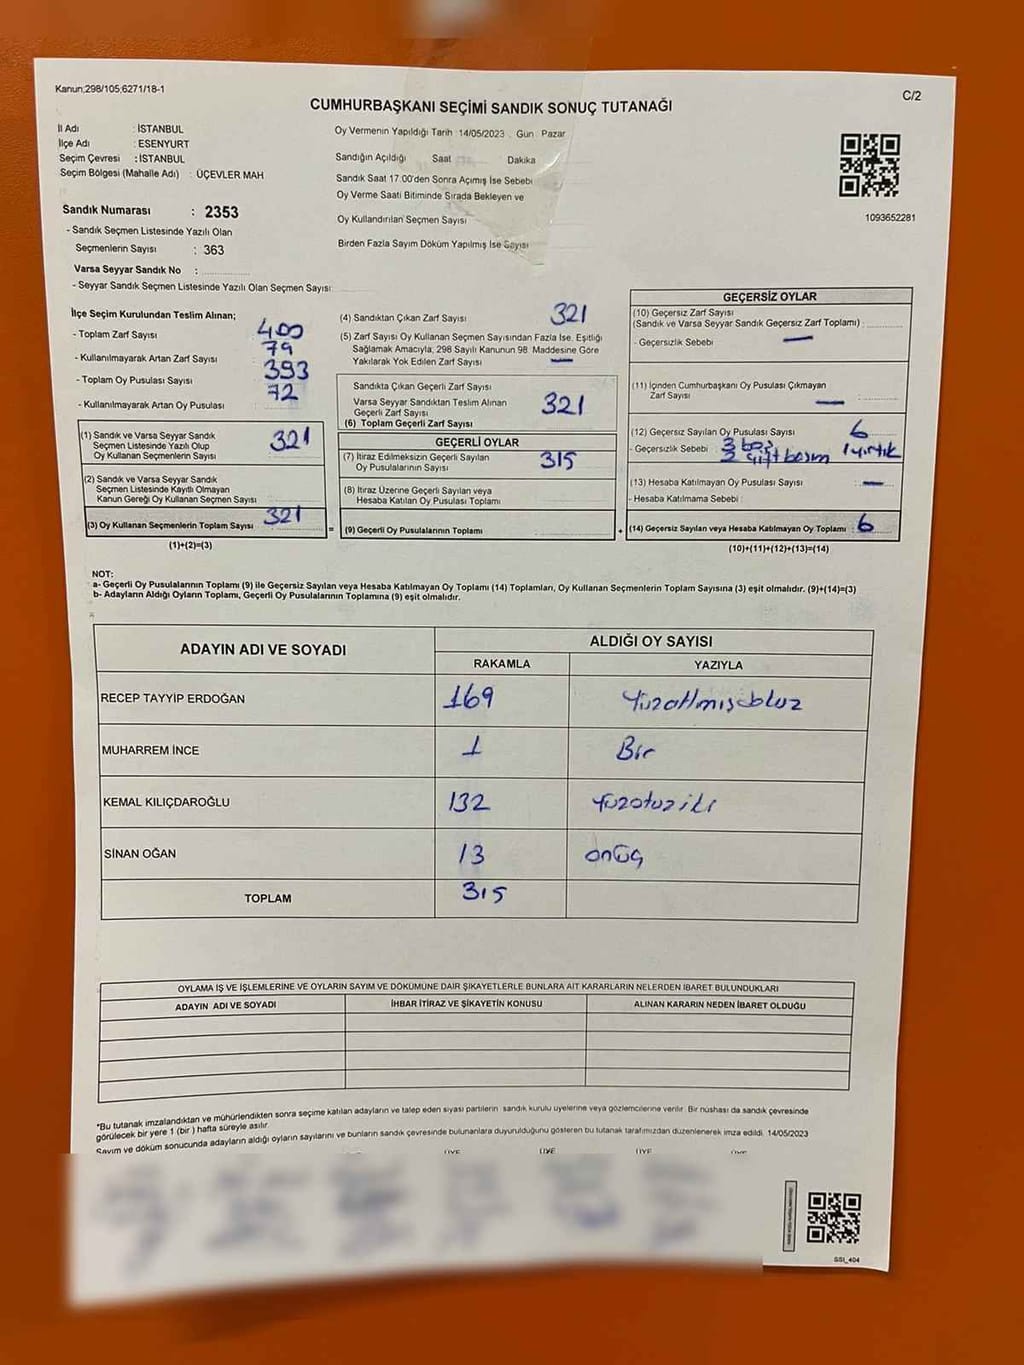 Kanun;298/105;6271/18-1
C/2
CUMHURBAŞKANI SEÇİMİ SANDIK SONUÇ TUTANAĞI
İl Adı : İSTANBUL
İlçe Adı : ESENYURT
Seçim Çevresi : İSTANBUL
Seçim Bölgesi (Mahalle Adı) : ÜÇEVLER MAH
Sandık Numarası : 2353
- Sandık Seçmen Listesinde Yazılı Olan
Seçmenlerin Sayısı : 363
Varsa Seyyar Sandık No :
- Seyyar Sandık Seçmen Listesinde Yazılı Olan Seçmen Sayısı:
Oy Vermenin Yapıldığı Tarih :14/05/2023 . Gün : Pazar
Sandığın Açıldığı Saat Dakika
Sandık Saat 17.00'den Sonra Açımış İse Sebebi
Oy Verme Saati Bitiminde Sırada Bekleyen ve
Oy Kullandırılan Seçmen Sayısı
Birden Fazla Sayım Döküm Yapılmış İse Sayısı
1093652281
İlçe Seçim Kurulundan Teslim Alınan;
- Toplam Zarf Sayısı 400
- Kullanılmayarak Artan Zarf Sayısı 79
- Toplam Oy Pusulası Sayısı 393
- Kullanılmayarak Artan Oy Pusulası 72
(1) Sandık ve Varsa Seyyar Sandık
Seçmen Listesinde Yazılı Olup
Oy Kullanan Seçmenlerin Sayısı 321
(2) Sandık ve Varsa Seyyar Sandık
Seçmen Listesinde Kayıtlı Olmayan
Kanun Gereği Oy Kullanan Seçmen Sayısı
(3) Oy Kullanan Seçmenlerin Toplam Sayısı 321
(1)+(2)=(3)
(4) Sandıktan Çıkan Zarf Sayısı 321
(5) Zarf Sayısı Oy Kullanan Seçmen Sayısından Fazla İse, Eşitliği
Sağlamak Amacıyla; 298 Sayılı Kanunun 98. Maddesine Göre
Yakılarak Yok Edilen Zarf Sayısı —
Sandıkta Çıkan Geçerli Zarf Sayısı
Varsa Seyyar Sandıktan Teslim Alınan
Geçerli Zarf Sayısı
(6) Toplam Geçerli Zarf Sayısı 321
GEÇERLİ OYLAR
(7) İtiraz Edilmeksizin Geçerli Sayılan
Oy Pusulalarının Sayısı 315
(8) İtiraz Üzerine Geçerli Sayılan veya
Hesaba Katılan Oy Pusulaları Toplamı
= (9) Geçerli Oy Pusulalarının Toplamı
GEÇERSİZ OYLAR
(10) Geçersiz Zarf Sayısı
(Sandık ve Varsa Seyyar Sandık Geçersiz Zarf Toplamı) :
- Geçersizlik Sebebi —
(11) İçinden Cumhurbaşkanı Oy Pusulası Çıkmayan
Zarf Sayısı —
(12) Geçersiz Sayılan Oy Pusulası Sayısı 6
- Geçersizlik Sebebi : 3 boş 1 yırtık
2 çift basım
(13) Hesaba Katılmayan Oy Pusulası Sayısı : —
- Hesaba Katılmama Sebebi :
+ (14) Geçersiz Sayılan veya Hesaba Katılmayan Oy Toplamı : 6
(10)+(11)+(12)+(13)=(14)
NOT:
a- Geçerli Oy Pusulalarının Toplamı (9) ile Geçersiz Sayılan veya Hesaba Katılmayan Oy Toplamı (14) Toplamları, Oy Kullanan Seçmenlerin Toplam Sayısına (3) eşit olmalıdır. (9)+(14)=(3)
b- Adayların Aldığı Oyların Toplamı, Geçerli Oy Pusulalarının Toplamına (9) eşit olmalıdır.
ADAYIN ADI VE SOYADI
ALDIĞI OY SAYISI
RAKAMLA YAZIYLA
RECEP TAYYİP ERDOĞAN 169 Yüzaltmışdokuz
MUHARREM İNCE 1 Bir
KEMAL KILIÇDAROĞLU 132 Yüzotuziki
SİNAN OĞAN 13 onüç
TOPLAM 315
OYLAMA İŞ VE İŞLEMLERİNE VE OYLARIN SAYIM VE DÖKÜMÜNE DAİR ŞİKAYETLERLE BUNLARA AİT KARARLARIN NELERDEN İBARET BULUNDUKLARI
ADAYIN ADI VE SOYADI İHBAR İTİRAZ VE ŞİKAYETİN KONUSU ALINAN KARARIN NEDEN İBARET OLDUĞU
*Bu tutanak imzalandıktan ve mühürlendikten sonra seçime katılan adayların ve talep eden siyasi partilerin sandık kurulu üyelerine veya gözlemcilerine verilir. Bir nüshası da sandık çevresinde
görülecek bir yere 1 (bir ) hafta süreyle asılır.
Sayım ve döküm sonucunda adayların aldığı oyların sayılarını ve bunların sandık çevresinde bulunanlara duyurulduğunu gösteren bu tutanak tarafımızdan düzenlenerek imza edildi. 14/05/2023
ÜYE ÜYE ÜYE ÜYE
SSI_404